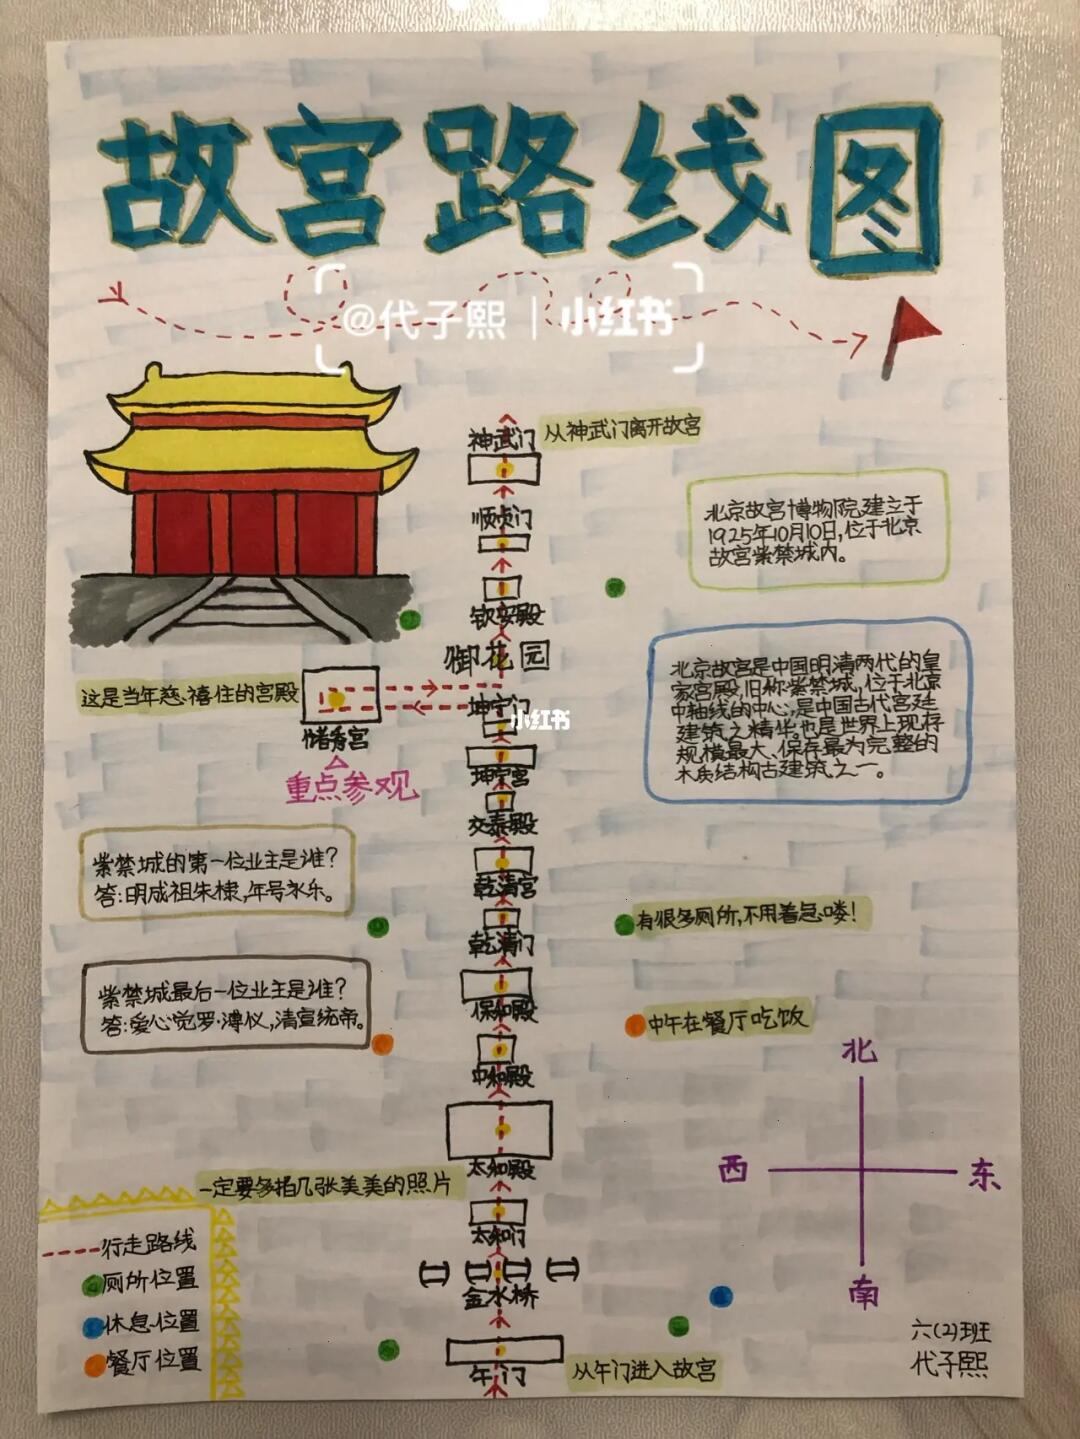 故宫路线图
@代子熙 | 小红书
神武门
从神武门离开故宫
顺贞门
北京故宫博物院建立于
1925年10月10日,位于北京
故宫紫禁城内。
钦安殿
御花园
北京故宫是中国明清两代的皇
家宫殿,旧称紫禁城,位于北京
中轴线的中心,是中国古代宫廷
建筑之精华。也是世界上现存
规模最大、保存最为完整的
木质结构古建筑之一。
这是当年慈禧住的宫殿
坤宁门
小红书
储秀宫
重点参观
坤宁宫
交泰殿
紫禁城的第一位业主是谁?
答:明成祖朱棣,年号永乐。
乾清宫
乾清门
有很多厕所,不用着急喽!
紫禁城最后一位业主是谁?
答:爱心觉罗·溥仪,清宣统帝。
保和殿
中午在餐厅吃饭
中和殿
北
西
东
南
太和殿
一定要多拍几张美美的照片
太和门
行走路线
厕所位置
休息位置
餐厅位置
金水桥
午门
从午门进入故宫
六(2)班
代子熙